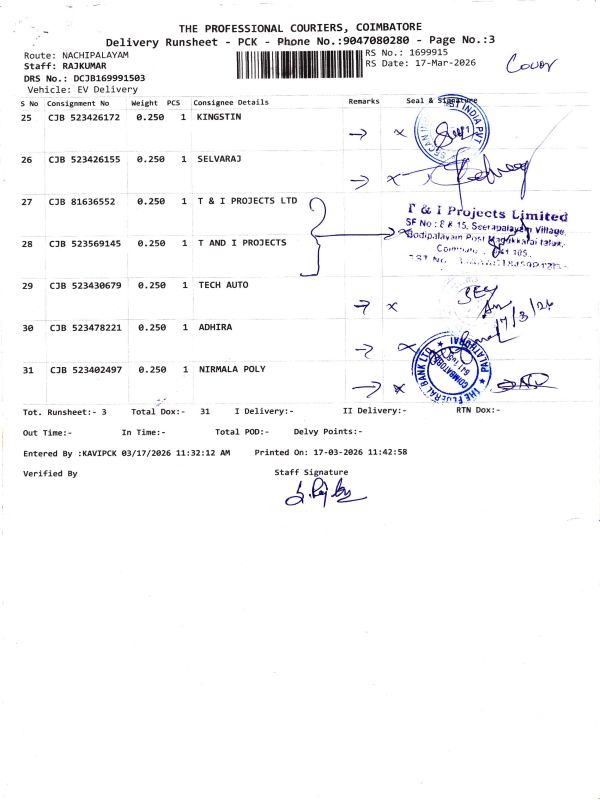 THE PROFESSIONAL COURIERS, COIMBATORE
Delivery Runsheet - PCK - Phone No.:9047080280 - Page No.:3
Route: NACHIPALAYAM
RS No.: 1699915
Staff: RAJKUMAR
RS Date: 17-Mar-2026
Cover
DRS No.: DCJB169991503
Vehicle: EV Delivery
S No Consignment No Weight PCS Consignee Details Remarks Seal & Signature
25 CJB 523426172 0.250 1 KINGSTIN
26 CJB 523426155 0.250 1 SELVARAJ
27 CJB 81636552 0.250 1 T & I PROJECTS LTD
T & I Projects Limited
SF No : 8 & 15, Seerapalayam Village,
Bodipalayam Post
28 CJB 523569145 0.250 1 T AND I PROJECTS
29 CJB 523430679 0.250 1 TECH AUTO
17/3/26
30 CJB 523478221 0.250 1 ADHIRA
31 CJB 523402497 0.250 1 NIRMALA POLY
THE FEDERAL BANK LTD
PALATHURAI
COIMBATORE
Tot. Runsheet:- 3 Total Dox:- 31 I Delivery:- II Delivery:- RTN Dox:-
Out Time:- In Time:- Total POD:- Delvy Points:-
Entered By :KAVIPCK 03/17/2026 11:32:12 AM Printed On: 17-03-2026 11:42:58
Verified By Staff Signature